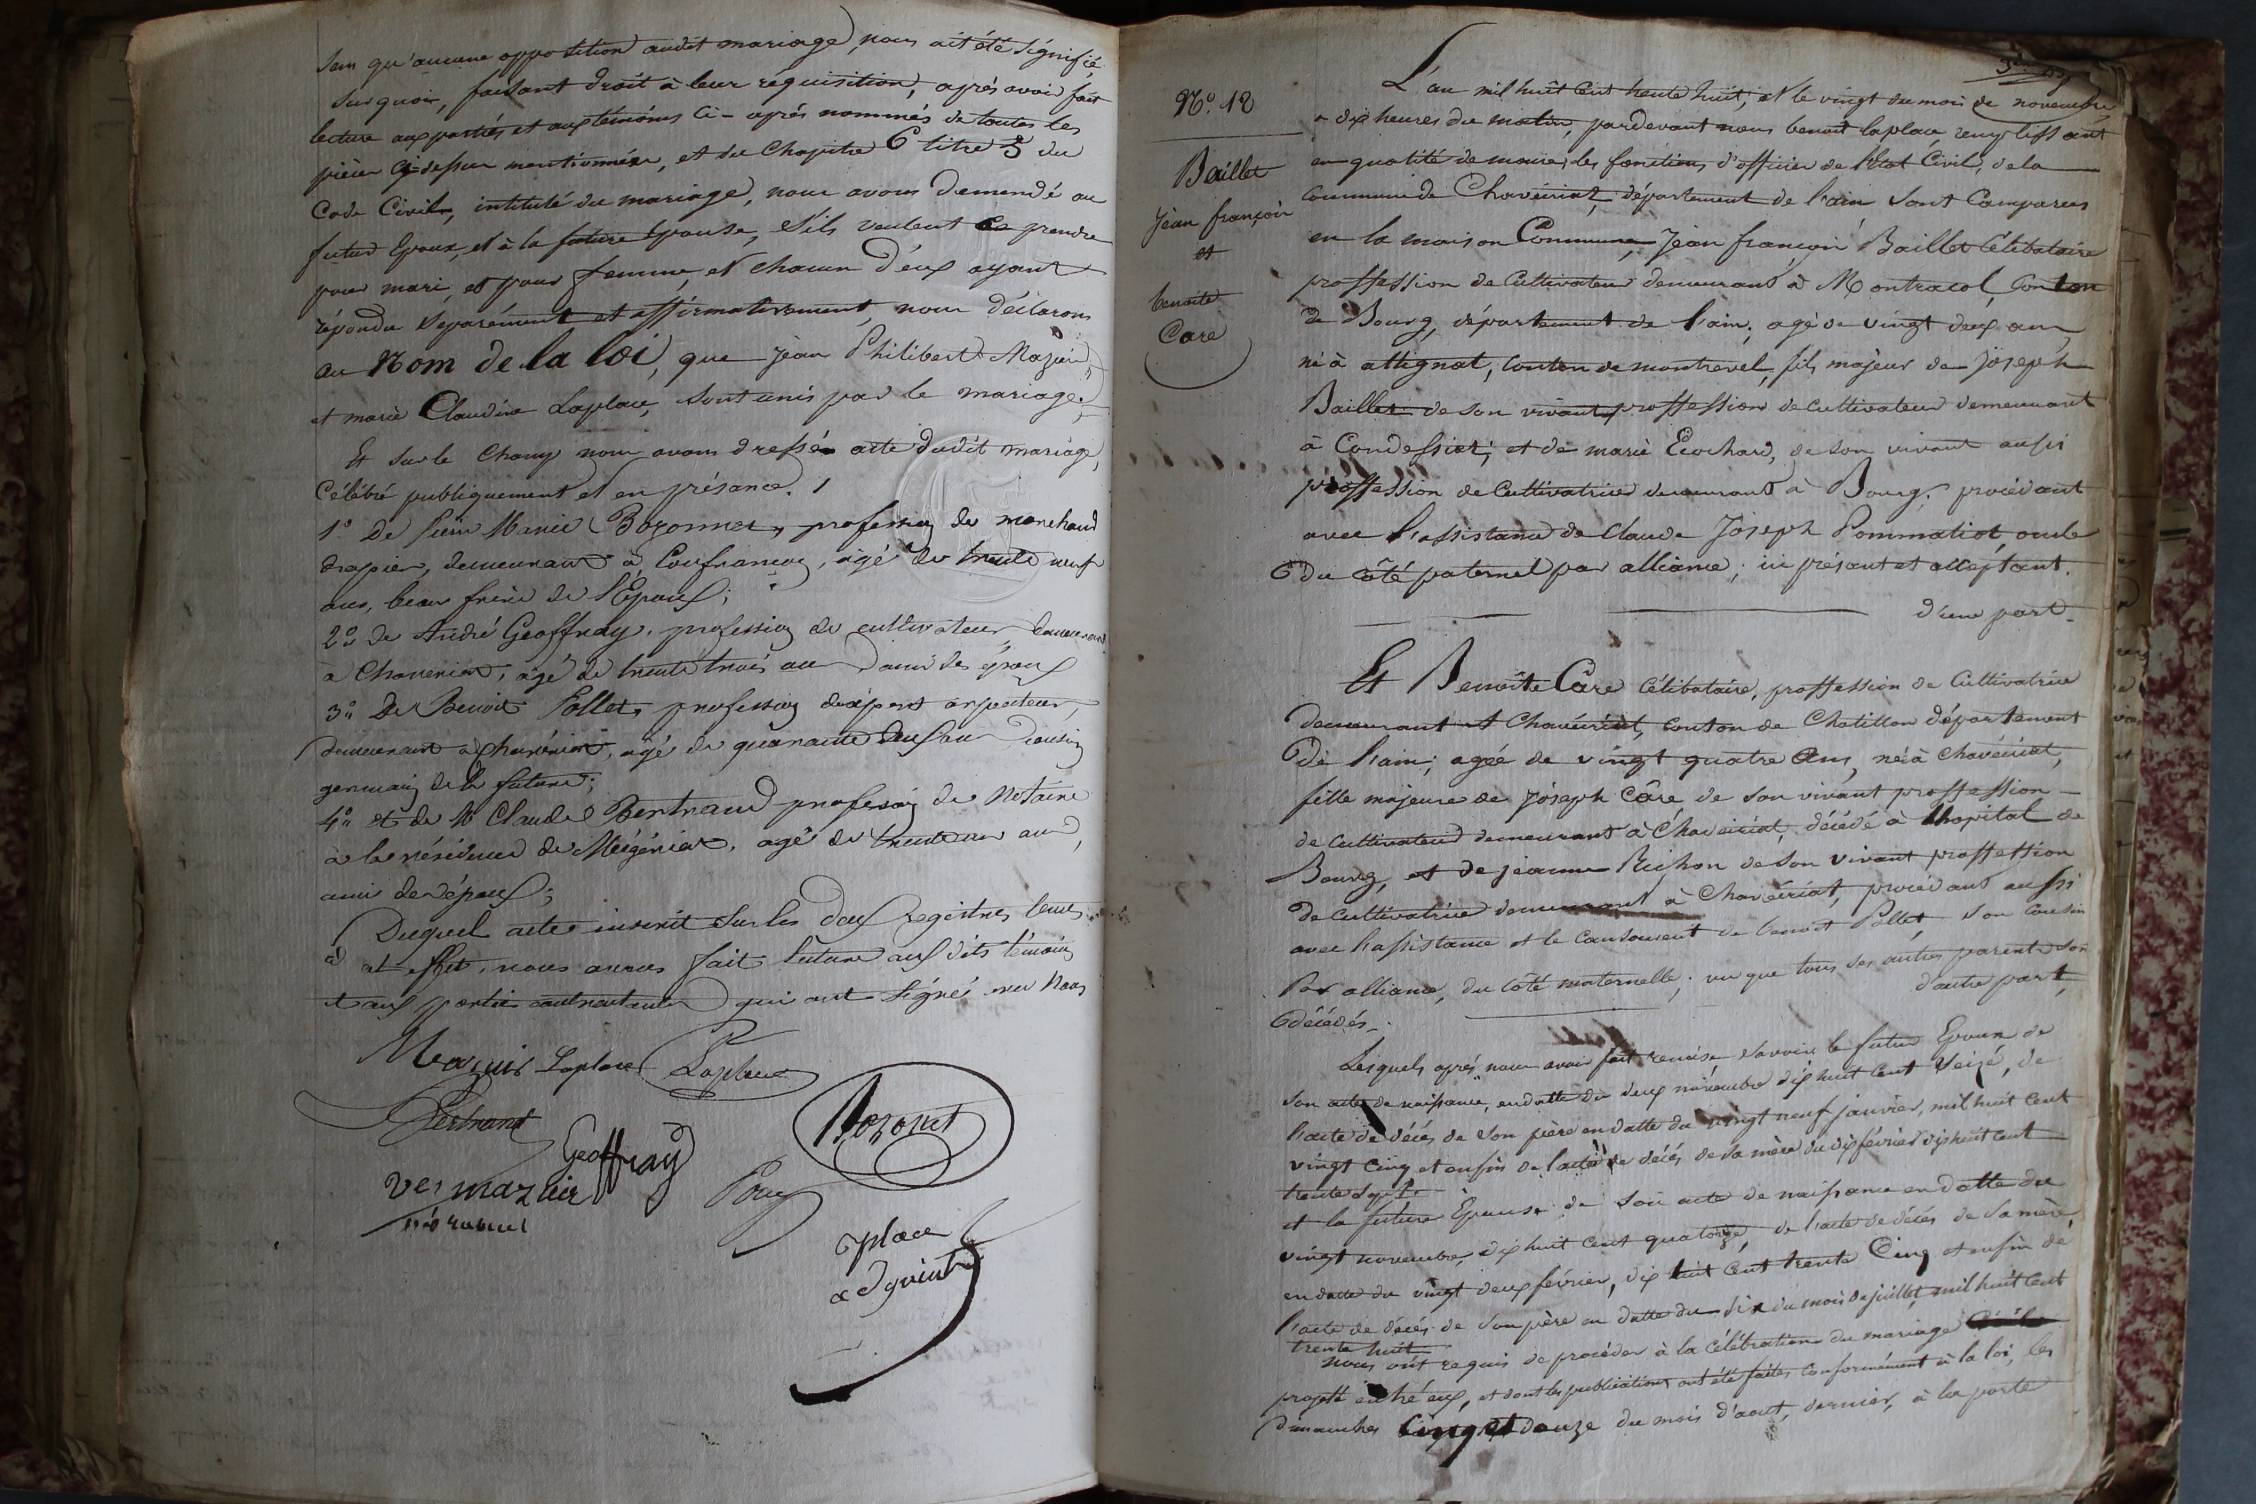 sans qu'aucune opposition audit mariage, nous ait été signifié,
sur quoi, faisant droit à leur réquisition, après avoir fait
lecture aux parties et aux témoins ci-après nommés de toutes les
pièces ci-dessus mentionnées, et du Chapitre 6 titre 5 du
Code Civil, intitulé du mariage, nous avons demandé au
futur Epoux, et à la future Epouse, s'ils veulent se prendre
pour mari, et pour femme, et chacun d'eux ayant
répondu séparément et affirmativement, nous déclarons
au Nom de la loi, que Jèan Philibert Mazuir,
et marie Claudine Laplace, sont unis par le mariage;
Et sur le Champ nous avons dressé acte dudit mariage,
Célébré publiquement et en présance. /
1.º De Pierre Marie Bozonnet, profession de marchand
drapier, demeurant à Confrançon, âgé de trente neuf
ans, beau frère de l'Epoux;
2.º de André Geoffray, profession de cultivateur, demeurant
à Chaveriat, âgé de trente trois ans, ami des époux
3.º De Benoit Pollet, profession d'expert arpenteur,
demeurant à Chavériat, âgé de quarante deux ans, cousin
germain de la future;
4.º et de M Claude Bertrand profession de Notaire
à la résidence de Mézériat, âgé de trente un ans,
ami de l'époux;
Duquel acte inscrit sur les deux registres tenus
à cet effet, nous avons fait lecture aux dits témoins
et aux parties contractantes qui ont signé avec Nous
Mazuir Laplace Laplace
Bertrand Bozonet
Geoffray
vee mazuir
Laplace
adjoint
N.º 12
Baillet
Jèan françois
et
benoite
Care
L'an mil huit Cent trente huit, et le vingt du mois de novembre,
a dix heures du matin, pardevant nous benoit laplace, remplissant
en quatité de maire, les fonctions d'officier de l'Etat Civil, de la
Commune de Chavériat, département de l'ain sont Comparus
en la maison Commune, Jèan françois Baillet Célibataire
proffession de Cultivateur demeurant à Montracol, Canton
de Bourg, département de l'ain; agé de vingt deux ans,
né à attignat, Canton de montrevel, fils majeur de Joseph
Baillet de son vivant proffession de Cultivateur demeurant
à Condessiat; et de marie Ecochard, de son vivant aussi
proffession de Cultivatrice demeurant à Bourg; procédant
avec l'assistance de Claude Joseph Pommatiot, oncle
du côté paternel par alliance; ici présant et acceptant.
d'une part.
Et Benoite Care Célibataire, proffession de Cultivatrice
demeurant à Chavériat, Canton de Chatillon département
de l'ain; agée de vingt quatre Ans, né à Chavériat,
fille majeure de Joseph Care, de son vivant proffession
de Cultivateur demeurant à Chavériat, décédé à lhopital de
Bourg, et de jeanne Richon de son vivant proffession
de Cultivatrice demeurant à Chavériat, procédant aussi
avec l'assistance et le Consenment de benoit Pollet, son Cousin
Par alliance, du côté maternelle; vu que tous ses autres parents son
décédés. d'autre part,
Lesquels après nous avoir fait remise savoir le futur Epoux de
son acte de naissance, en datte du deux novembre dix huit cent seize, de
l'acte de décés de son père en datte du vingt neuf janvier, mil huit cent
vingt Cinq et enfin de l'acte de décés de sa mère du dix février dix huit cent
trente sept.
et la future Epouse de son acte de naissance en datte du
vingt novembre, dix huit cent quatorze, de l'acte de décés de sa mère,
en datte du vingt deux février, dix huit cent trente Cinq et enfin de
l'acte de décés de son père en datte du Six du mois de juillet, mil huit cent
trente huit.
nous ont requis de procéder à la Célébration du mariage
projeté entré eux, et dont les publications ont été faites Conformément à la loi, les
Dimanches Cinq et douze du mois d'aout, dernier, à la porte